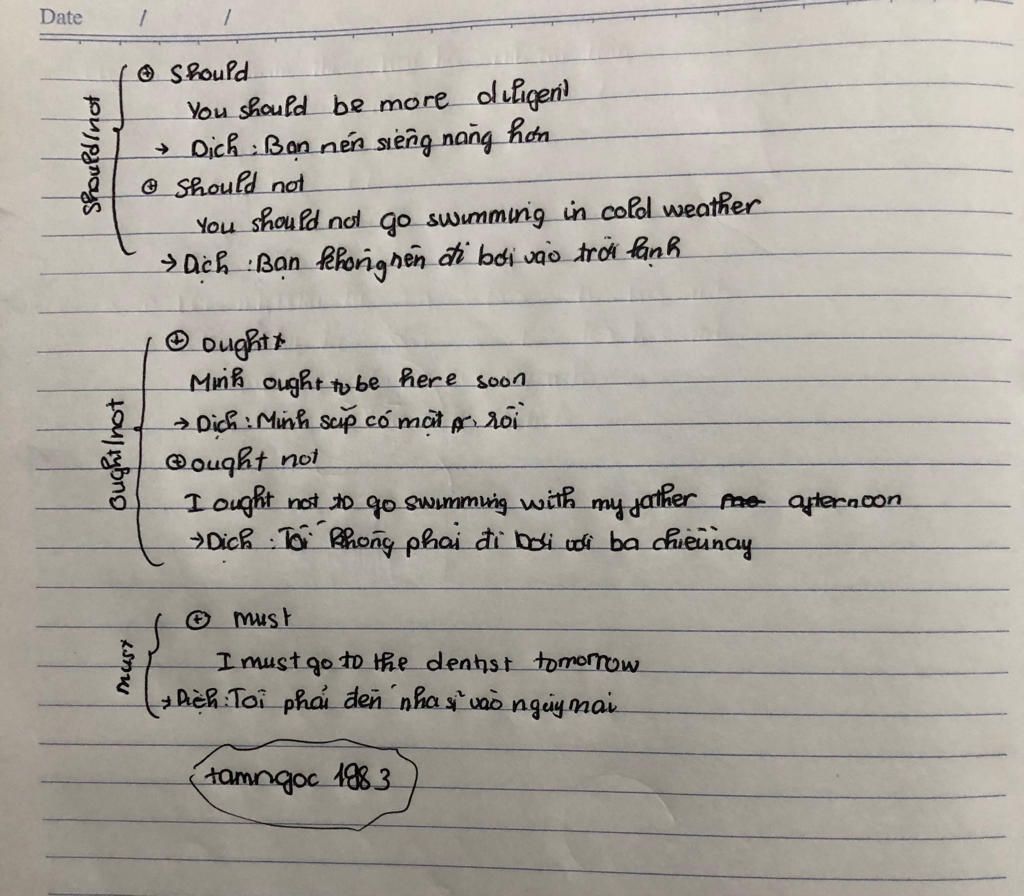 Date / /
Should/not
⊕ Should
You should be more diligent
→ Dịch : Bạn nên siêng năng hơn
⊕ Should not
You should not go swimming in cold weather
→ Dịch : Bạn không nên đi bơi vào trời lạnh
Ought/not
⊕ ought
Minh ought to be here soon
→ Dịch : Minh sắp có mặt rồi
⊕ ought not
I ought not to go swimming with my father afternoon
→ Dịch : Tôi không phải đi bơi với ba chiều nay
must
⊕ must
I must go to the dentist tomorrow
→ Dịch : Tôi phải đến nha sĩ vào ngày mai
tamngoc 1983